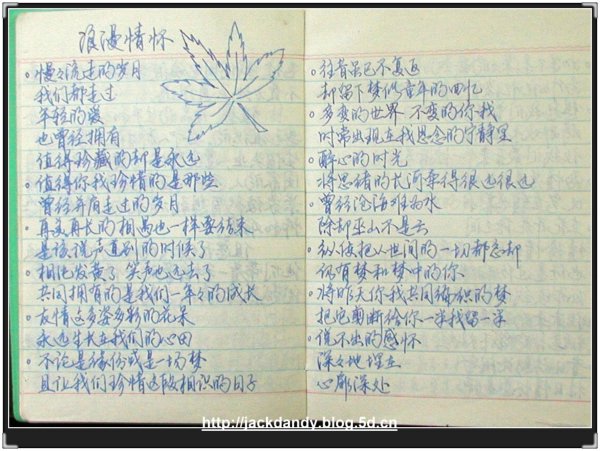 浪漫情怀
。慢々流走的岁月
我们都走过
年轻的岁
也曾经拥有
值得珍藏的却是永远
。值得你我珍惜的是那些
曾经并肩走过的岁月
。再长再长的相遇也一样要结束
是该说声直别的时候了
。相纸发黄了 笑声也远去了
共同拥有的是我们一年々的成长
。友情这多姿多彩的花朵
永远生长在我们的心田
。不论是缘份或是一场梦
且让我们珍惜这段相识的日子
。往昔虽已不复返
却留下梦似童年的回忆
。多变的世界 不变的你我
时常出现在我思念的宁静里
。醉心的时光
将思绪的长河牵得很远很远
。曾经沧海难为水
除却巫山不是云
。纵使把人世间的一切都忘却
仍有梦和梦中的你
。将昨天你我共同编织的梦
把它剪断给你一半我留一半
。说不出的感怀
深々地埋在
心廓深处
http://jackdandy.blog.5d.cn